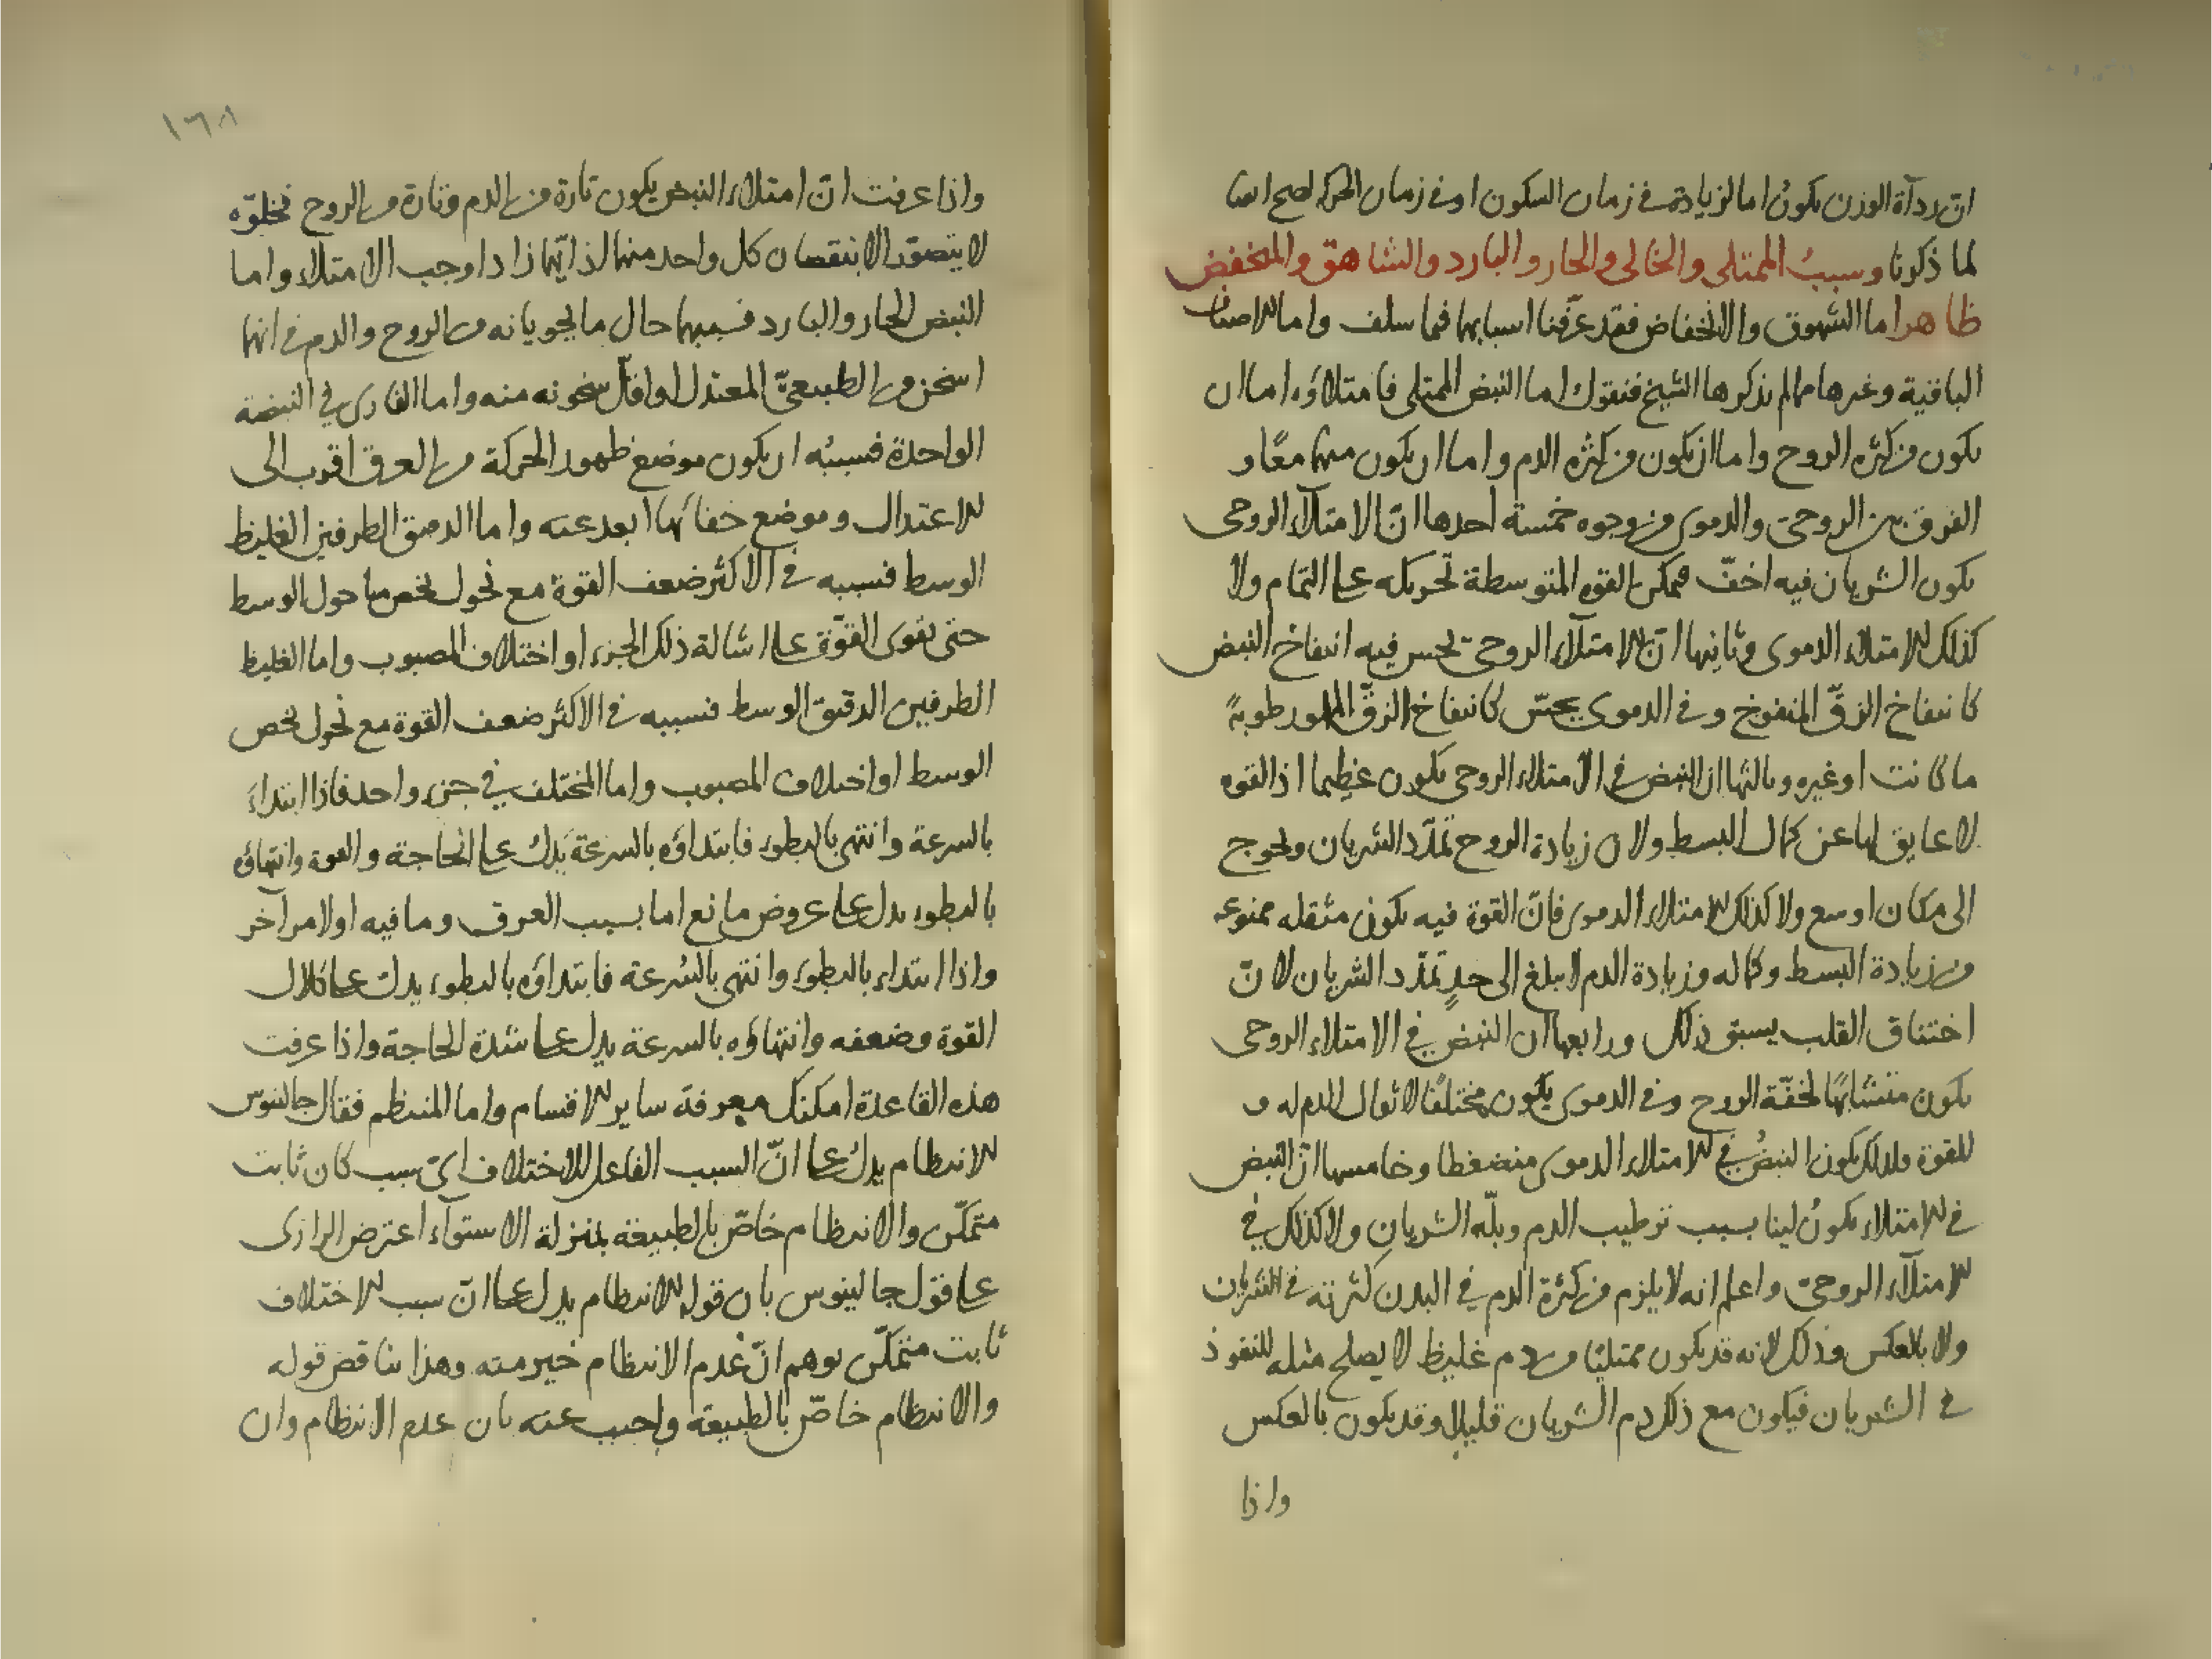 ان رداءة الوزن يكون اما لزيادة في زمان السكون او في زمان الحركة
لما ذكرنا وسبب الممتلى والخالى والحار والبارد والشاهق والمنخفض
ظاهر اما الشهوق والانخفاض فقد عرفنا اسبابها فيما سلف واما الاصناف
الباقية وغيرها مما لم يذكرها الشيخ فنقول اما النبض الممتلى فامتلاؤه اما ان
يكون من كثرة الروح واما ان يكون من كثرة الدم واما ان يكون منهما معًا و
الفرق بين الروحى والدموى من وجوه خمسة احدها انّ الامتلاء الروحى
يكون الشريان فيه اخفّ فيمكن القوة المتوسطة تحريكه على التمام ولا
كذلك الامتلاء الدموى وثانيها انّ الامتلاء الروحى يحس فيه انتفاخ النبض
كانتفاخ الزقّ المنفوخ وفى الدموى يحسّ كانتفاخ الزقّ المملو رطوبةً
ما كانت او غيره وثالثها ان النبض في الامتلاء الروحى يكون عظيما اذ القوة
لا عايق لها عن كمال البسط ولان زيادة الروح تمدّد الشريان ويحوج
الى مكان اوسع ولا كذلك الامتلاء الدموى فانّ القوة فيه يكون مثقلة ممنوعة
من زيادة البسط وكماله وزيادة الدم لا يبلغ الى حدٍ تمدّد الشريان لانّ
اختناق القلب يسبق ذلك ورابعها ان النبض في الامتلاء الروحى
يكون متشابهًا لخفّة الروح وفى الدموى يكون مختلفًا لاثقال الدم له و
للقوة ولذلك يكون النبضُ في الامتلاء الدموى منضغطا وخامسها انّ النبض
في الامتلاء يكون لينا بسبب ترطيب الدم وبلّه الشريان ولا كذلك في
الامتلاء الروحى واعلم انه لا يلزم من كثرة الدم في البدن كثرته في الشريان
ولا بالعكس وذلك لانه قد يكون ممتليًا من دم غليظ لا يصلح مثله للنفوذ
في الشريان فيكون مع ذلك دم الشريان قليلا وقد يكون بالعكس
واذا
١٦٨
واذا عرفت انّ امتلاء النبض يكون تارة من الدم وتارة من الروح فخلوّه
لا يتصوّر الا بنقصان كل واحد منهما اذ ايّهما زاد اوجب الامتلاء واما
النبض الحار والبارد فسببهما حال ما يحويانه من الروح والدم في انهما
اسخن من الطبيعىّ المعتدل او اقلّ سخونه منه واما الغازى في النبضة
الواحدة فسببُه ان يكون موضع ظهور الحركة من العرق اقرب الى
الاعتدال وموضع خفائها ابعد عنه واما الدقيق الطرفين الغليظ
الوسط فسببه في الاكثر ضعف القوة مع تحول يخص ما حول الوسط
حتى يقوى القوّة على اشالة ذلك الجزء او اختلاف المصبوب واما الغليظ
الطرفين الدقيق الوسط فسببه في الاكثر ضعف القوة مع تحول يخص
الوسط او اختلاف المصبوب واما المختلف في جزء واحد فاذا ابتداء
بالسرعة وانتهى بالبطوء فابتداؤه بالسرعة يَدلُّ على الحاجة والقوة وانتهاؤه
بالبطوء يدل على عروض مانع اما بسبب العرق وما فيه او لامر آخر
واذا ابتداء بالبطوء وانتهى بالسُرعة فابتداؤه بالبطوء يدل على كلال
القوة وضعفه وانتهاؤه بالسرعة يدل على شدة الحاجة واذا عرفت
هذه القاعدة امكنك معرفة ساير الاقسام واما المنتظم فقال جالينوس
الانتظام يدلُّ على انّ السبب الفاعل للاختلاف اىّ سبب كان ثابت
متمكّن والانتظام خاصّ بالطبيعة بمنزلة الاستوآء اعترض الرازى
على قول جالينوس بان قوله الانتظام يدل على انّ سبب الاختلاف
ثابت متمكّن يوهم انّ عدم الانتظام خير منه وهذا يناقض قوله
والانتظام خاصّ بالطبيعة واجيب عنه بان عدم الانتظام وان